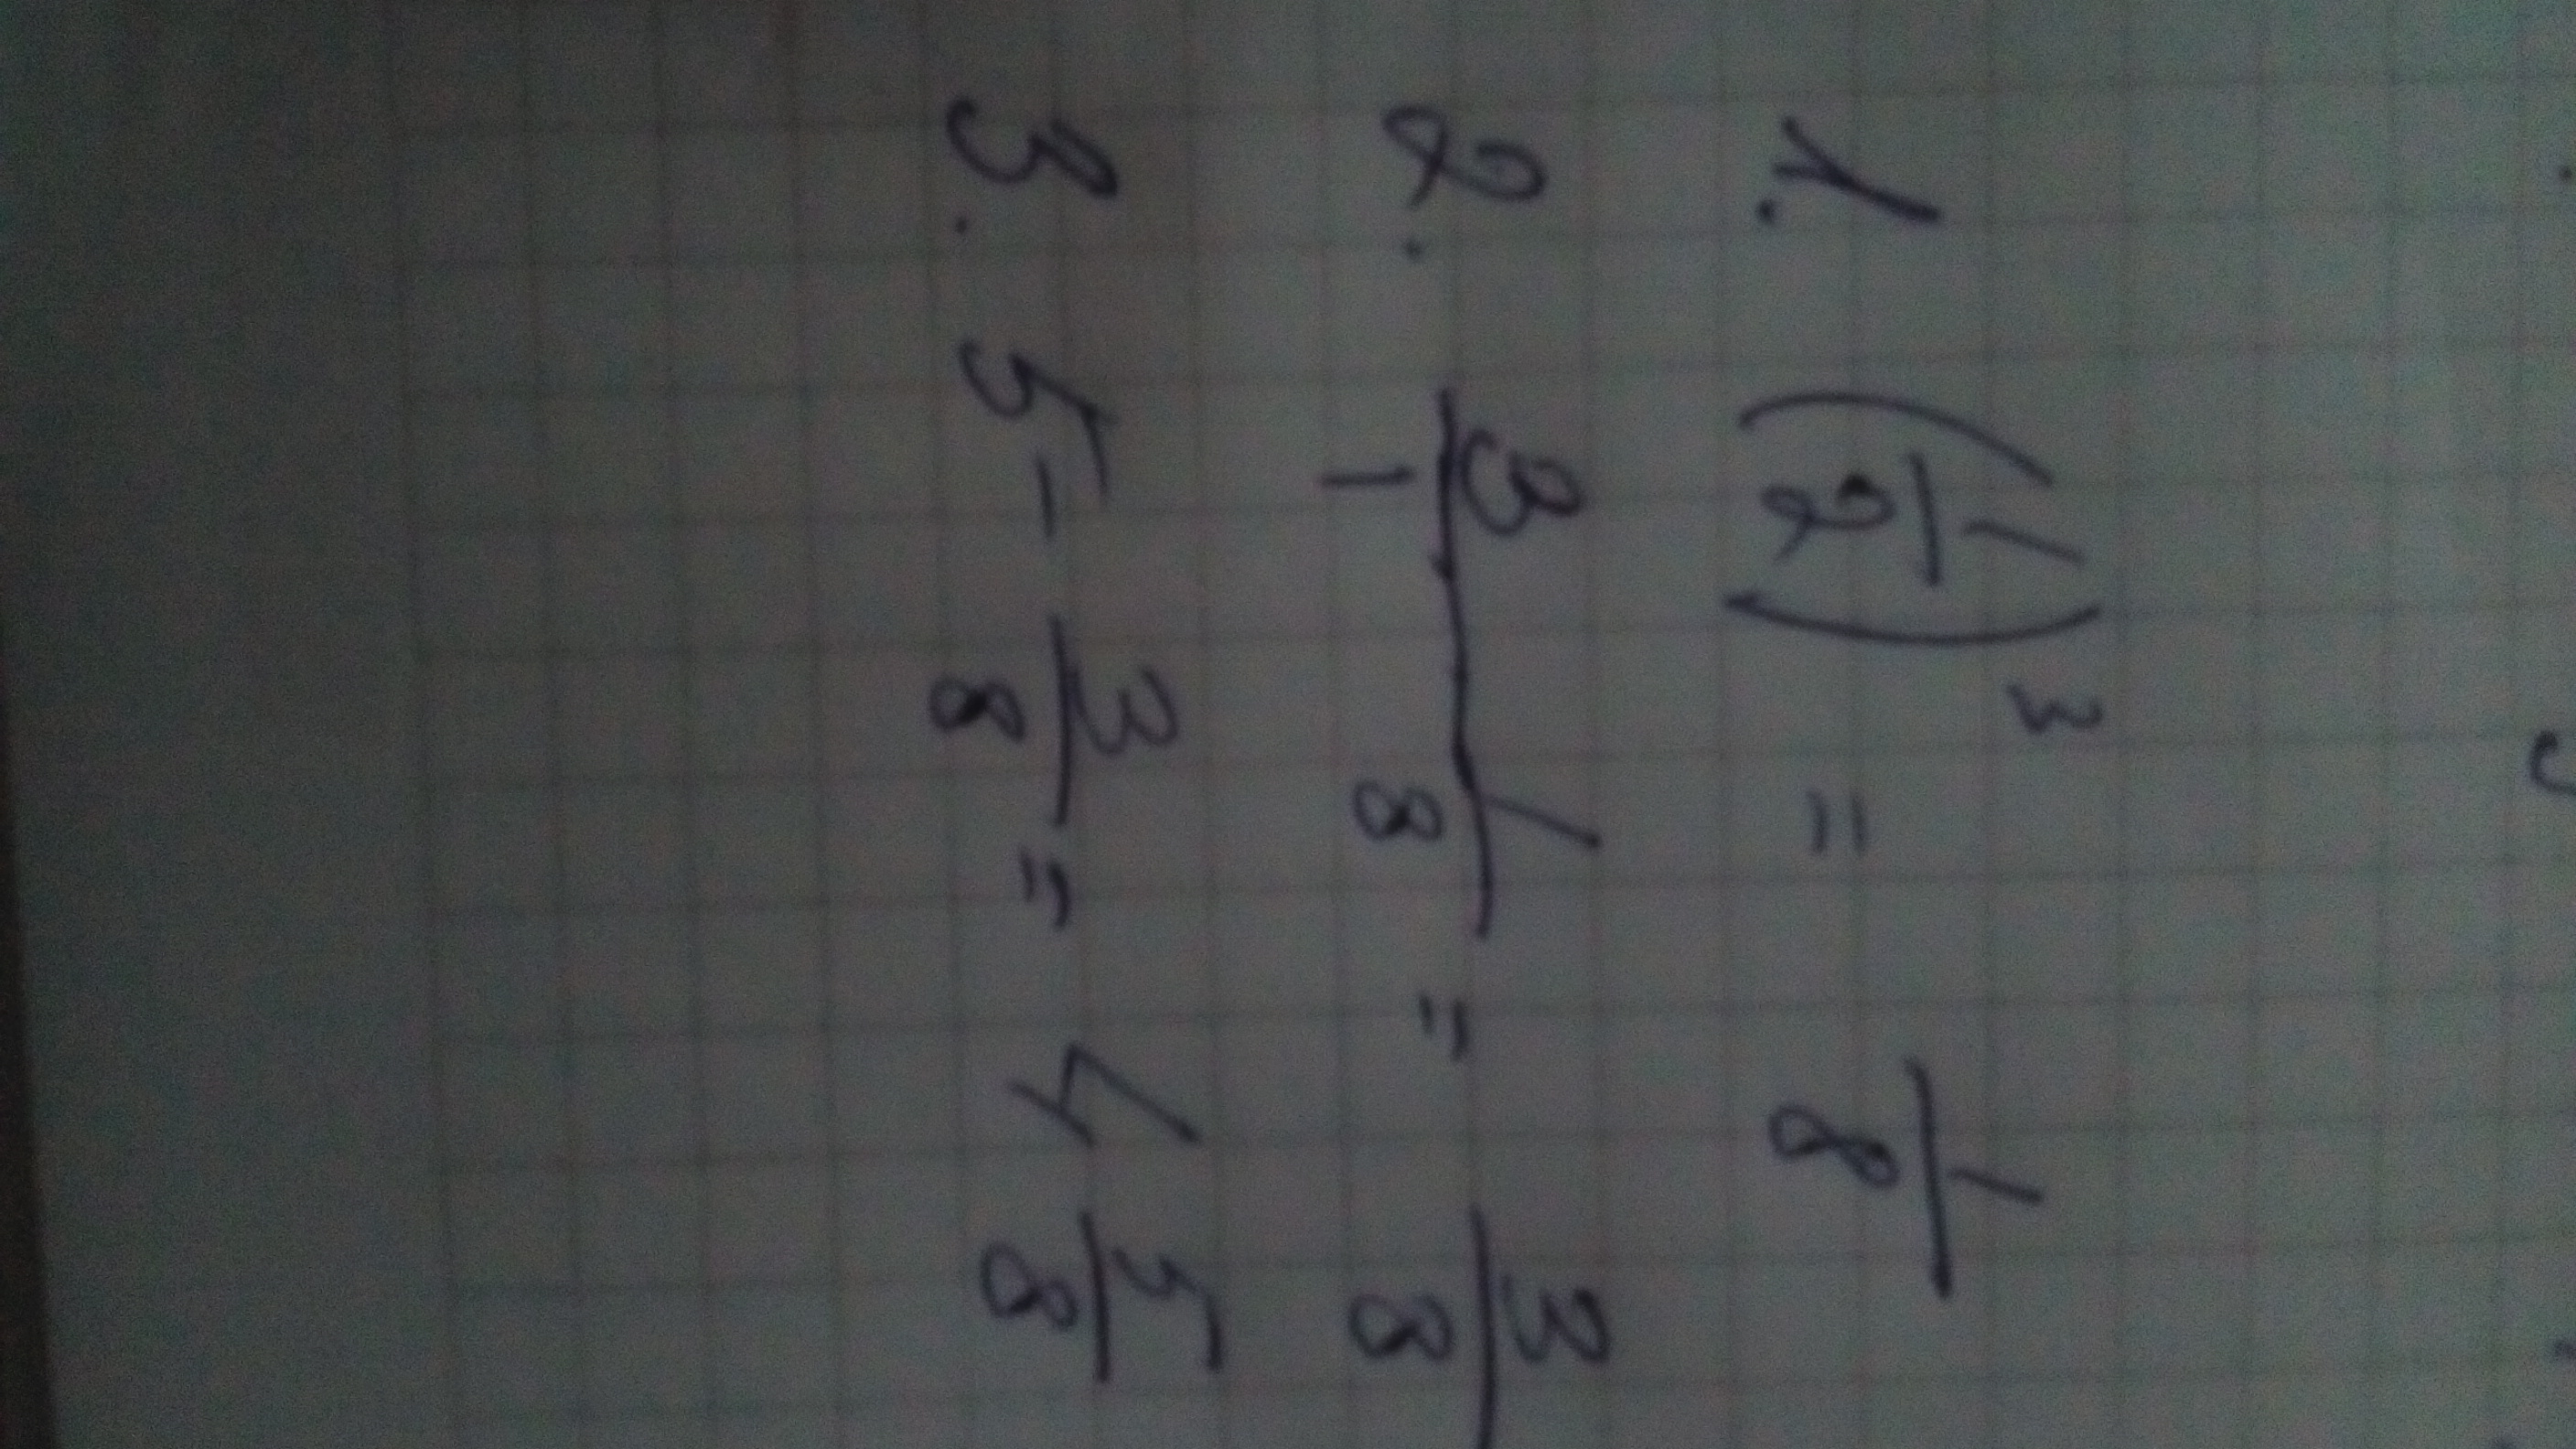 1. (1/2)³ = 1/8
2. 3 1/1 8 = 3/8
3. 5 - 3/8 = 4 5/8